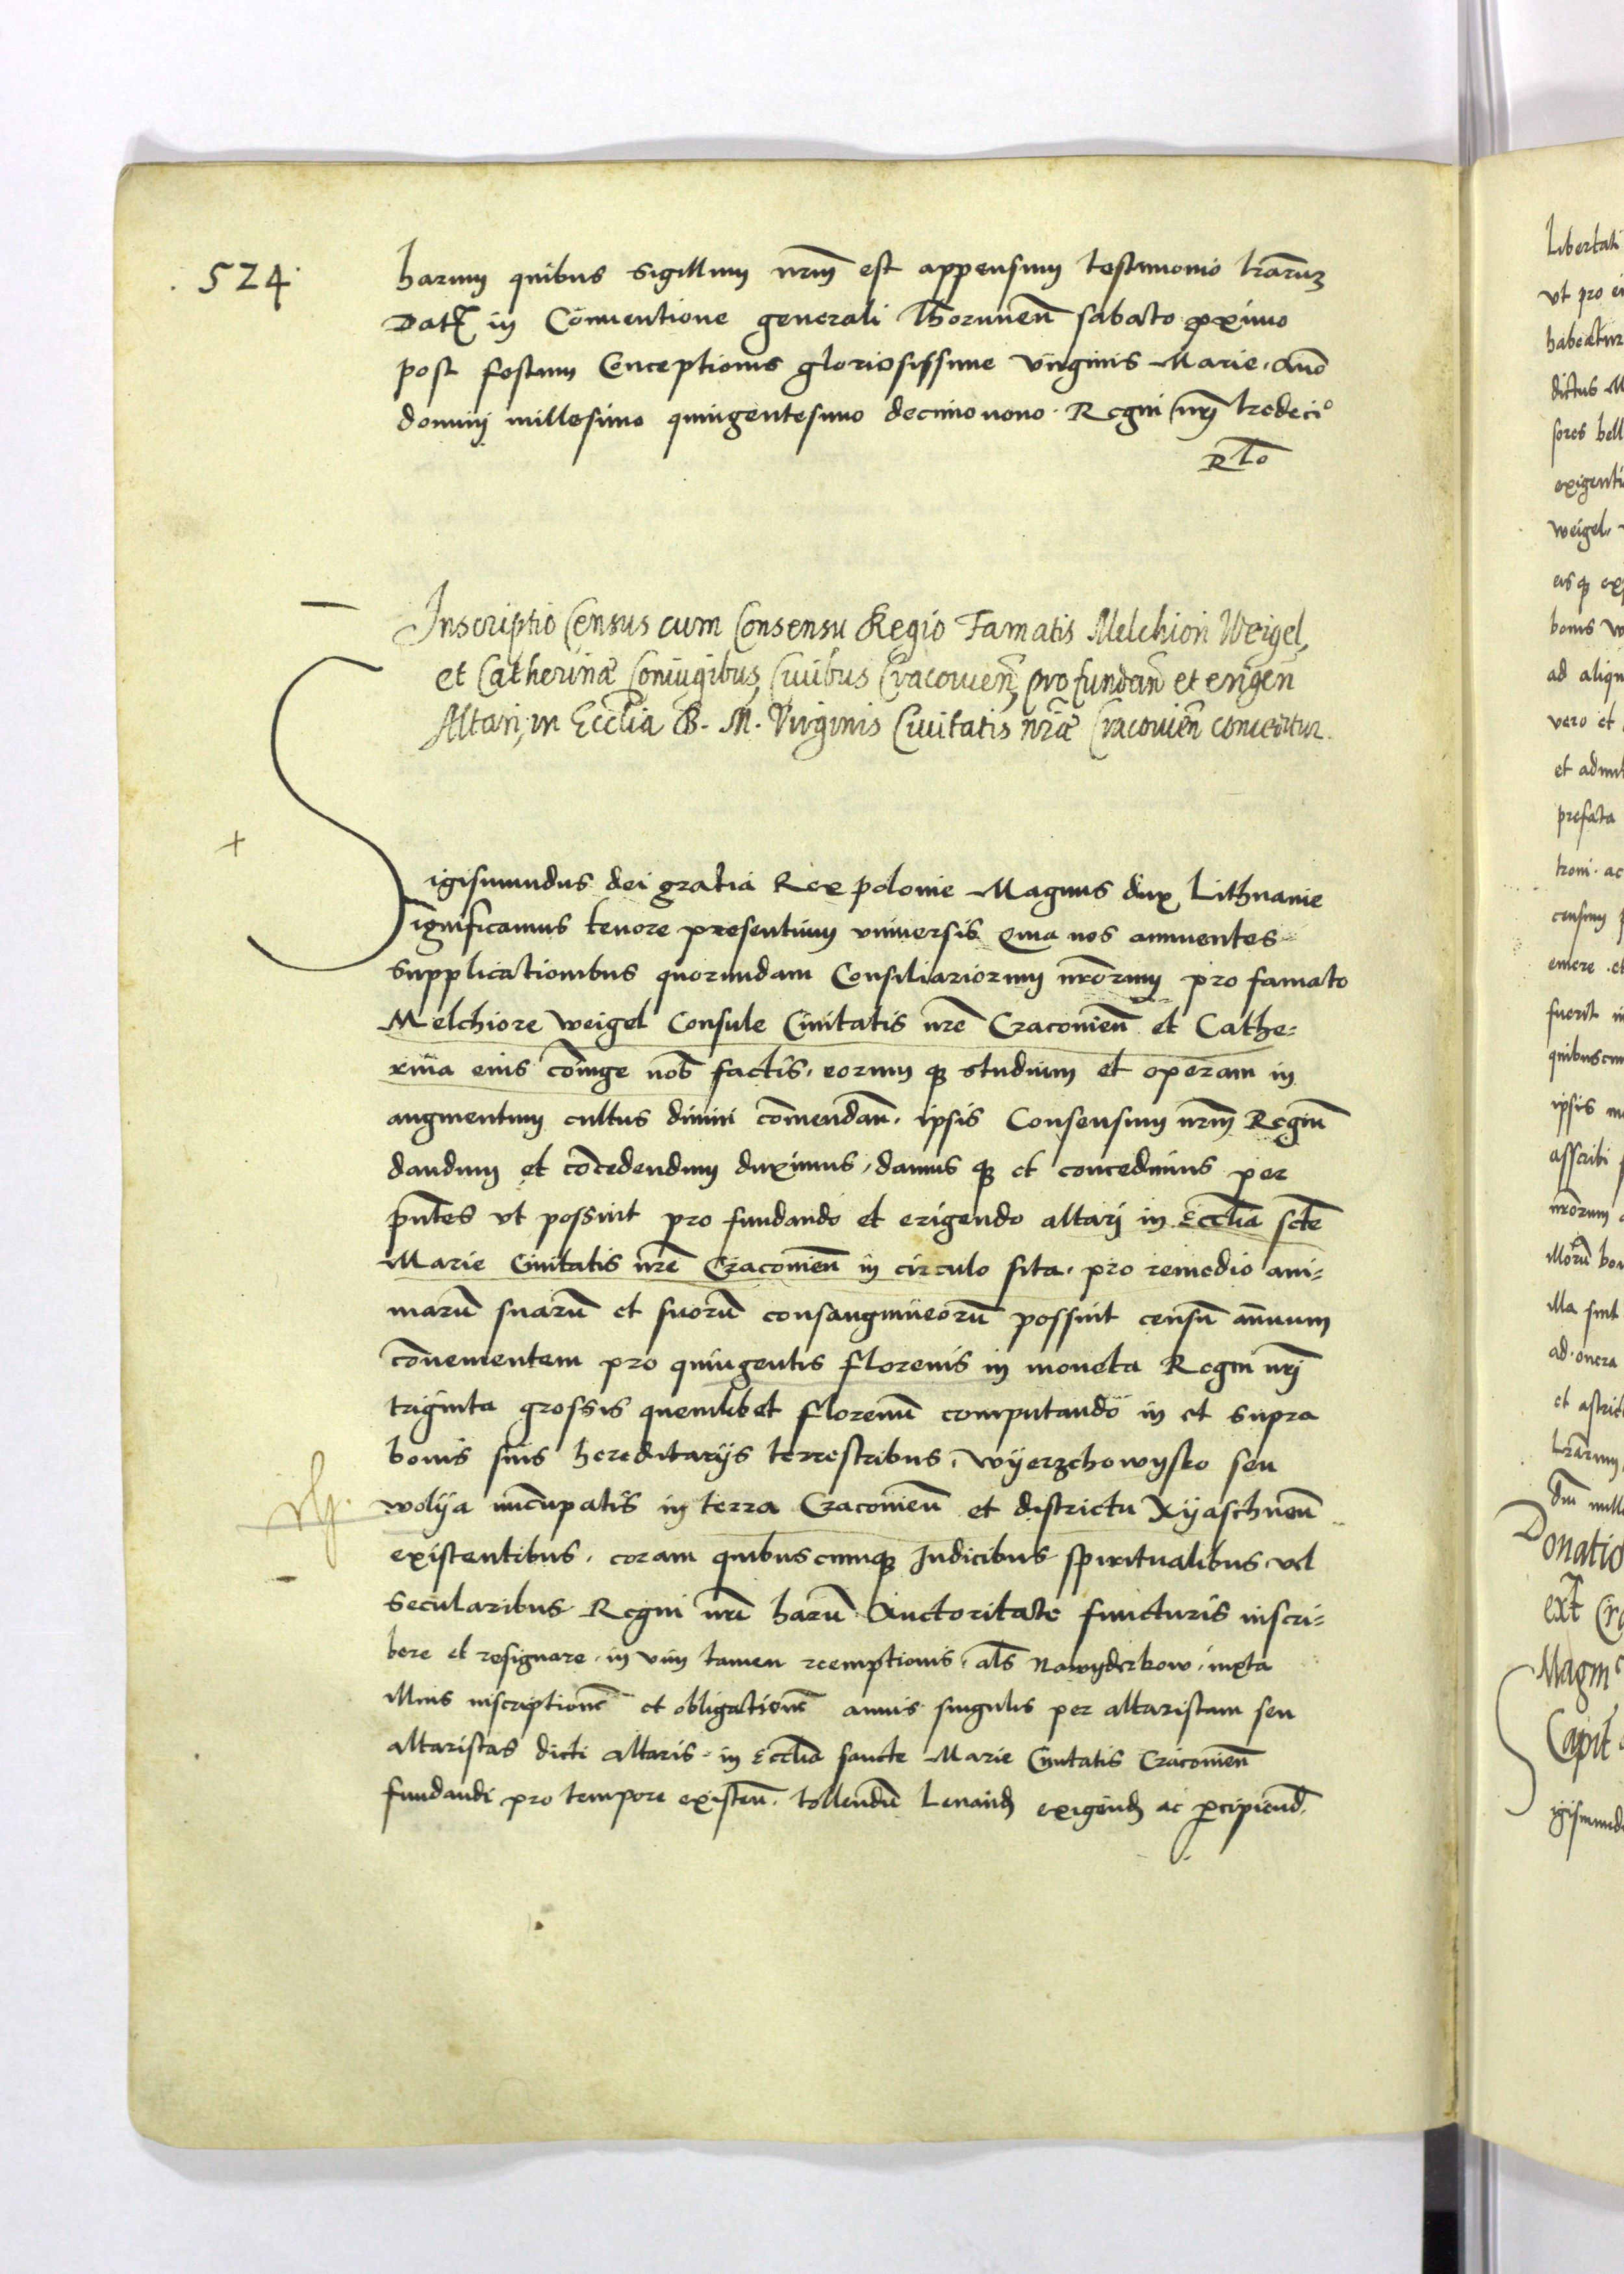 . 524.
harum quibus sigillum nrm̄ est appensum testimonio lr̄arum
Dat̄ in Conventione generali Thorunen̄ sabato proximo
post festum Conceptionis gloriosissime virginis Marie. Anno
domini millesimo quingentesimo decimonono. Regni nrī tredecio
Rlo
Inscriptio Census cum Consensu Regio Famatis Melchiori Weigel,
et Catherinæ Coniugibus, Civibus Cracovien̄, pro fundan̄ et erigen̄
Altari, in Ecclīa B. M. Virginis Civitatis nrāe Cracovien̄ conceditur.
+
Sigismundus dei gratia Rex polonie Magnus dux Lithuanie
Significamus tenore presentium universis Quia nos annuentes
supplicationibus quorundam Consiliariorum nrōrum pro famato
Melchiore weigel Consule Civitatis nrē Cracovien̄ et Cathe=
rina eius cōiuge nob̄ factis, eorum q3 studium et operam in
augmentum cultus divini cōmendan̄. ipsis Consensum nrm̄ Regiū
dandum et cōcedendum duximus, damus q3 et concedimus per
pn̄tes vt possint pro fundando et erigendo altari in Ecclīa sctē
Marie Civitatis nrē Cracovien̄ in circulo sita. pro remedio ani=
marū suarū et suorū consanguineorū possint censū annuum
cōvenientem pro quingentis florenis in moneta Regni nrī
triginta grossis quemlibet florenū computando in et supra
bonis suis hereditarijs terrestribus, wyerzchowysko seu
wolya nūcupatis in terra Cracovien̄ et districtu Xyaschnen̄
existentibus. coram quibuscumq3 Iudicibus spiritualibus vel
secularibus Regni nrī harū Auctoritate functuris inscri=
bere et resignare. in vim tamen reemptionis, al̄s Nawyderkow, iuxta
illius inscriptionē et obligationē annis singulis per altaristam seu
altaristas dicti altaris. in Ecclīa sancte Marie Civitatis Cracovien̄
fundandi pro tempore existen̄. tollendū Levand̄ exigend̄ ac percipiend̄.
Libertati
vt pro
habeatur
dictus M
exigenti
weigel.
bonis
ad aliqu
vero et
et admit
prefata
censum
emere. et
fuerit
quibuscum
ipsis
asscribi
nrōrum
illa sint
ad onera
et astrict
lr̄arum
Donatio
Magni
Capit
igismund